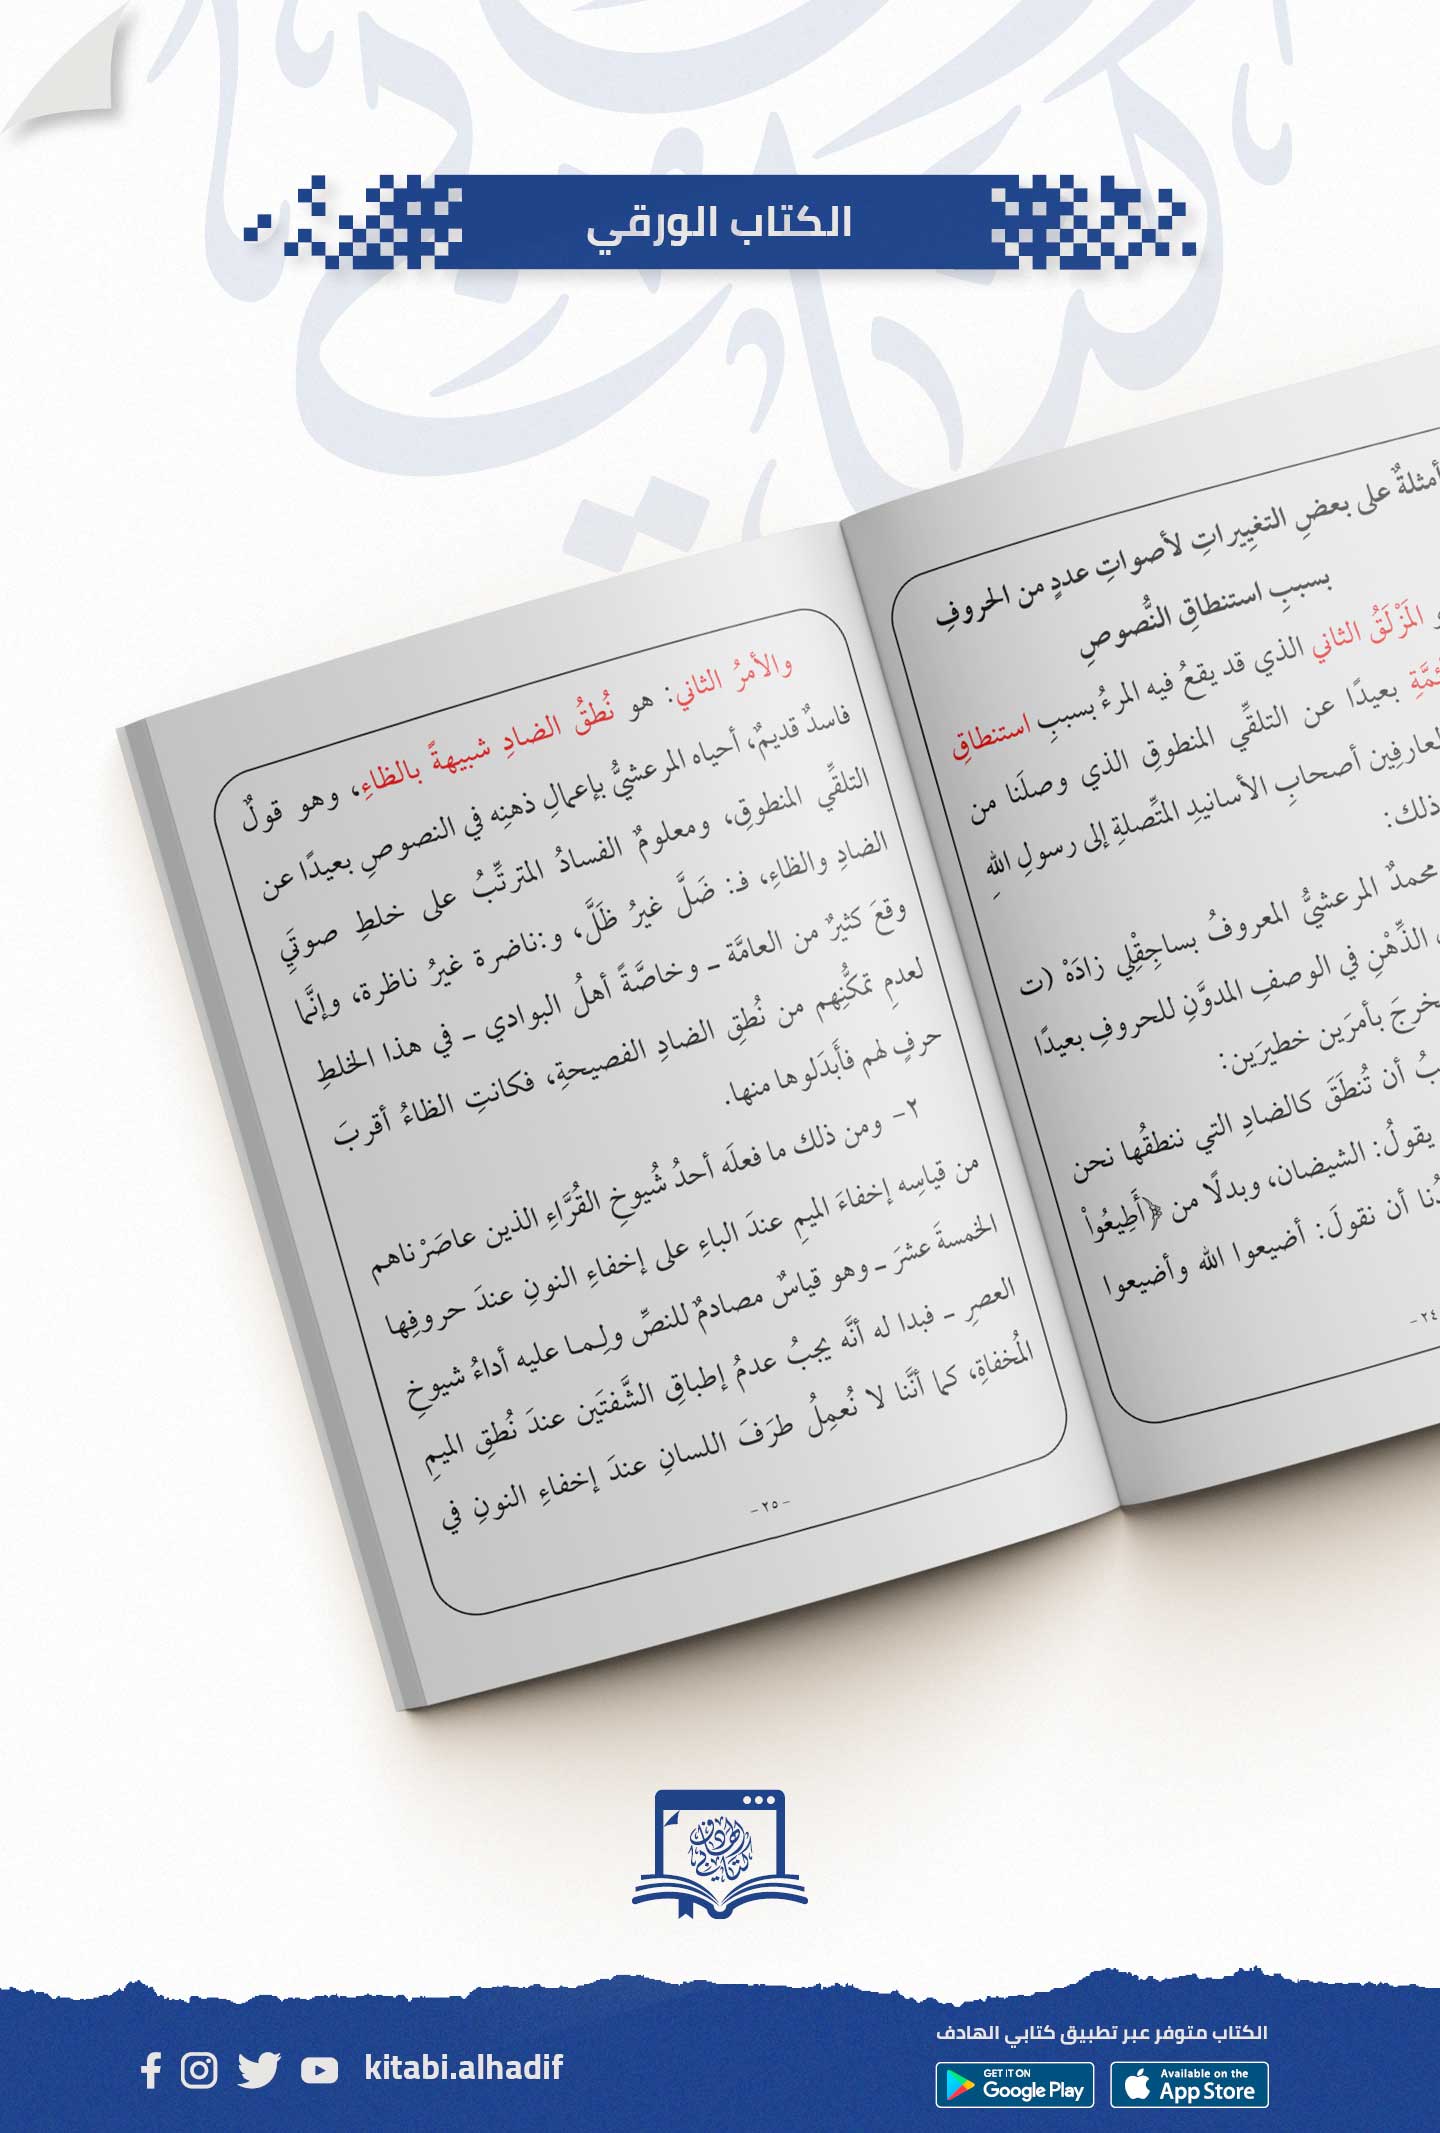 الكتاب الورقي
أمثلةٌ على بعضِ التغيِيراتِ لأصواتِ عددٍ من الحروفِ
بسببِ استنطاقِ النُّصوصِ
المَزْلَقُ الثاني الذي قد يقعُ فيه المرءُ بسببِ استنطاقِ
بعيدًا عن التلقِّي المنطوقِ الذي وصلَنا من
لعارفِين أصحابِ الأسانيدِ المتَّصلةِ إلى رسولِ اللهِ
ذلك:
محمدٌ المرعشيُّ المعروفُ بساجِقْلِي زادَهْ (ت
الذِّهْنِ في الوصفِ المدوَّنِ للحروفِ بعيدًا
خرجَ بأمرَين خطيرَين:
أن تُنطَقَ كالضادِ التي ننطقُها نحن
يقولُ: الشيضان، وبدلًا من ﴿أَطِيعُواْ
أن نقولَ: أضيعوا الله وأضيعوا
٢٤ -
والأمرُ الثاني: هو نُطقُ الضادِ شبيهةً بالظاءِ، وهو قولٌ
فاسدٌ قديمٌ، أحياه المرعشيُّ بإعمالِ ذهنِه في النصوصِ بعيدًا عن
التلقِّي المنطوقِ، ومعلومٌ الفسادُ المترتِّبُ على خلطِ صوتَيِ
الضادِ والظاءِ، فـ: ضَلَّ غيرُ ظَلَّ، و:ناضرة غيرُ ناظرة، وإنَّما
وقعَ كثيرٌ من العامَّة ـ وخاصَّةً أهلُ البوادي ـ في هذا الخلطِ
لعدمِ تمكُّنِهم من نُطقِ الضادِ الفصيحةِ، فكانتِ الظاءُ أقربَ
حرفٍ لهم فأَبدَلوها منها.
٢- ومن ذلك ما فعلَه أحدُ شُيوخِ القُرَّاءِ الذين عاصَرْناهم
من قياسِه إخفاءَ الميمِ عندَ الباءِ على إخفاءِ النونِ عندَ حروفِها
الخمسةَ عشرَ ـ وهو قياسٌ مصادمٌ للنصِّ ولِـمـا عليه أداءُ شيوخِ
العصرِ ـ فبدا له أنَّه يجبُ عدمُ إطباقِ الشَّفتَين عندَ نُطقِ الميمِ
المُخفاةِ، كما أنَّنا لا نُعمِلُ طرَفَ اللسانِ عندَ إخفاءِ النونِ في
- ٢٥ -
كتابي الهادف
الكتاب متوفر عبر تطبيق كتابي الهادف
kitabi.alhadif
GET IT ON
Google Play
Available on the
App Store